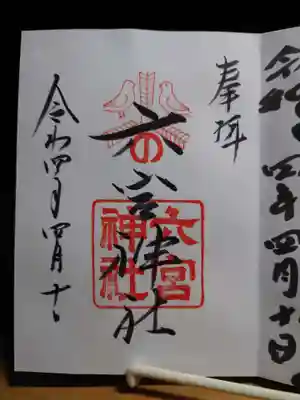 奉拝
六の宮神社
六宮
神社
令和四年四月十日
令和四年四月十日